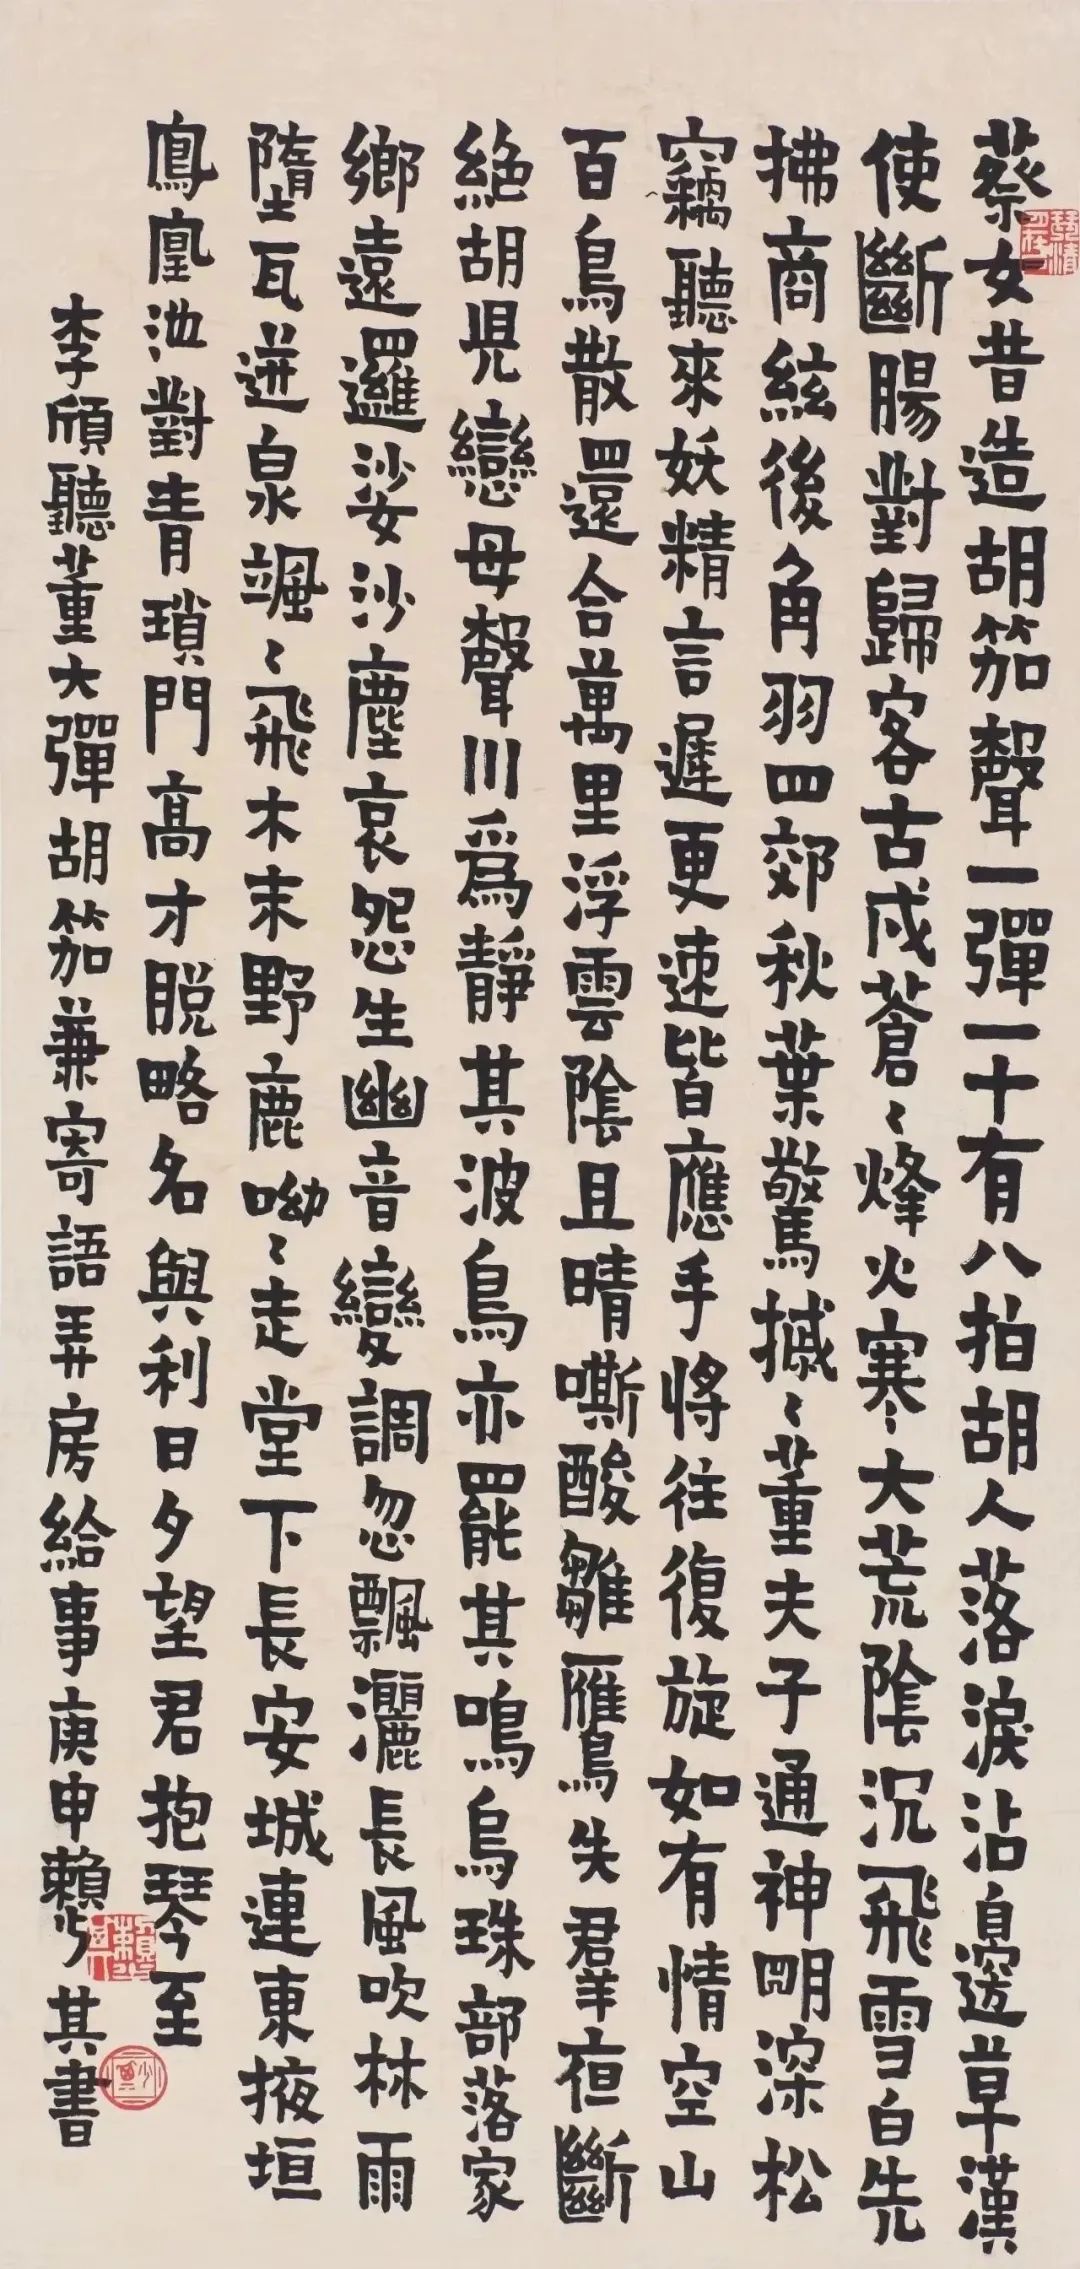 蔡女昔造胡笳聲一彈一十有八拍胡人落淚沾邊草漢
使斷腸對歸客古戍蒼〻烽火寒大荒陰沉飛雪白先
拂商絃後角羽四郊秋葉驚摵〻董夫子通神明深松
竊聽來妖精言遲更速皆應手將往復旋如有情空山
百鳥散還合萬里浮雲陰且晴嘶酸雛鴈失羣夜斷
絕胡兒戀母聲川爲靜其波鳥亦罷其鳴烏珠部落家
鄉遠邏娑沙塵哀怨生幽音變調忽飄灑長風吹林雨
墮瓦迸泉颯〻飛木末野鹿呦〻走堂下長安城連東掖垣
鳳凰池對青瑣門高才脫略名與利日夕望君抱琴至
李頎聽董大彈胡笳兼寄語弄房給事庚申賴少其書